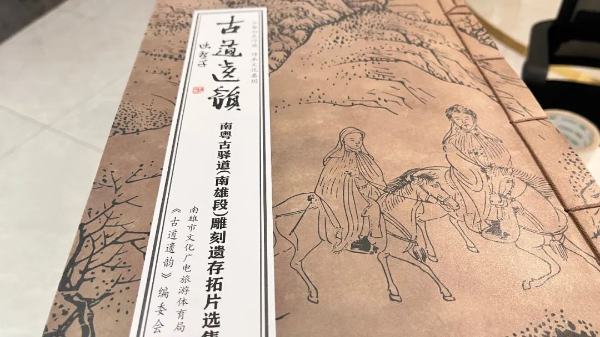 古道遗韵
南粤古驿道(南雄段)雕刻遗存拓片选集
南雄市文化广电旅游体育局
《古道遗韵》编委会